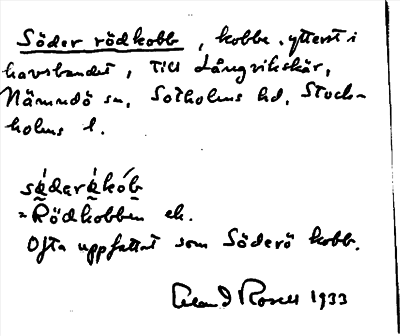 Söder rödkobb, kobbe ytterst i
havsbandet, till Långviksskär,
Nämndö sn, Sotholms hd, Stock-
holms l.
södarökób
= Rödkobben ek.
Ofta uppfattat som Söderö kobb.
1933